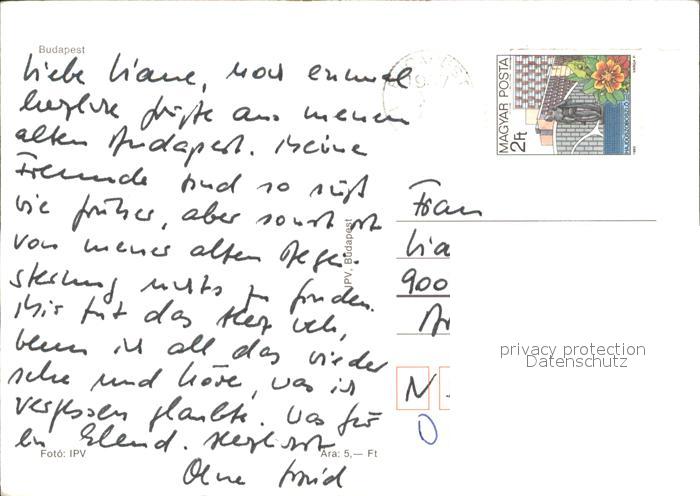 Budapest
Liebe Liane, noch einmal
herzliche Grüße aus meinem
alten Budapest. Meine
Freunde sind so süß
wie früher, aber sonst ist
von meiner alten Begei-
sterung nichts zu finden.
Mir tut das Herz weh,
wenn ich all das wieder
sehe und höre, was ich
vergessen glaubte. Was für
ein Elend. Herzlichst
Foto: IPV
Ára: 5,— Ft
IPV, Budapest
MAGYAR POSTA
2 Ft
Frau
Lia
900
N
privacy protection
Datenschutz